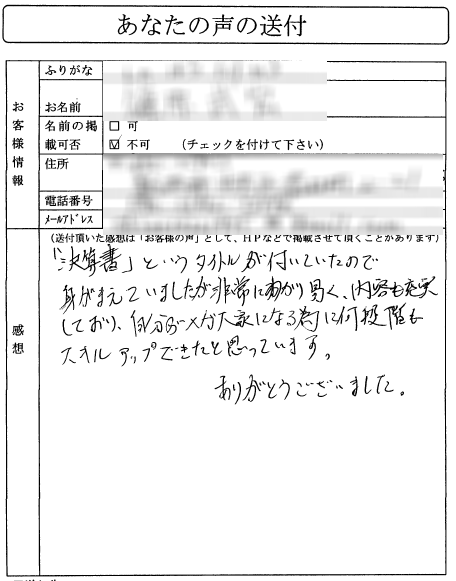 あなたの声の送付
お客様情報
ふりがな
お名前
名前の掲載可否
□ 可
☑ 不可 (チェックを付けて下さい)
住所
電話番号
メールアドレス
感想
(送付頂いた感想は「お客様の声」として、HPなどで掲載させて頂くことがあります)
「決算書」というタイトルが付いていたので
身がまえていましたが非常にわかり易く、内容も充実
しており、自分が
になる為に何段階も
スキルアップできたと思っています。
ありがとうございました。